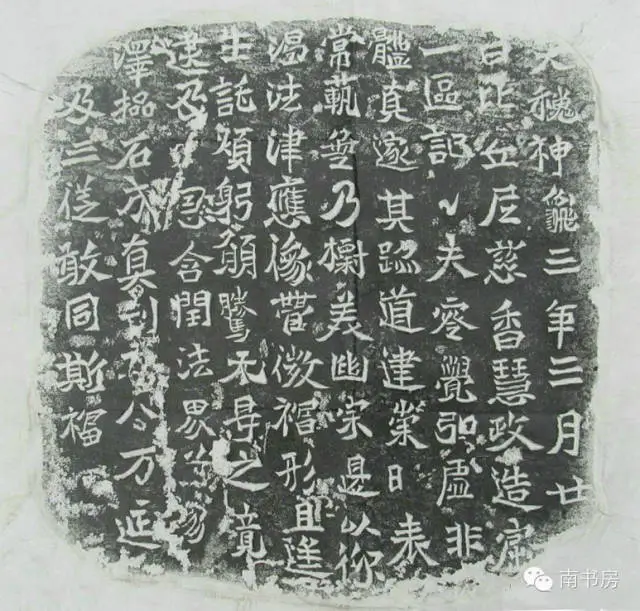 大魏神龜三年三月廿
日比丘尼慈香慧政造窟
一區記之夫零覺弘虛非
體真邃其跡道建崇日表
常軌無乃標美幽宗是以仰
渴法津應像營微福形且遙
生託煩躬願騰无㝵之境
逮及恩含閏法界
澤石成真万延
及三從敢同斯福
南书房